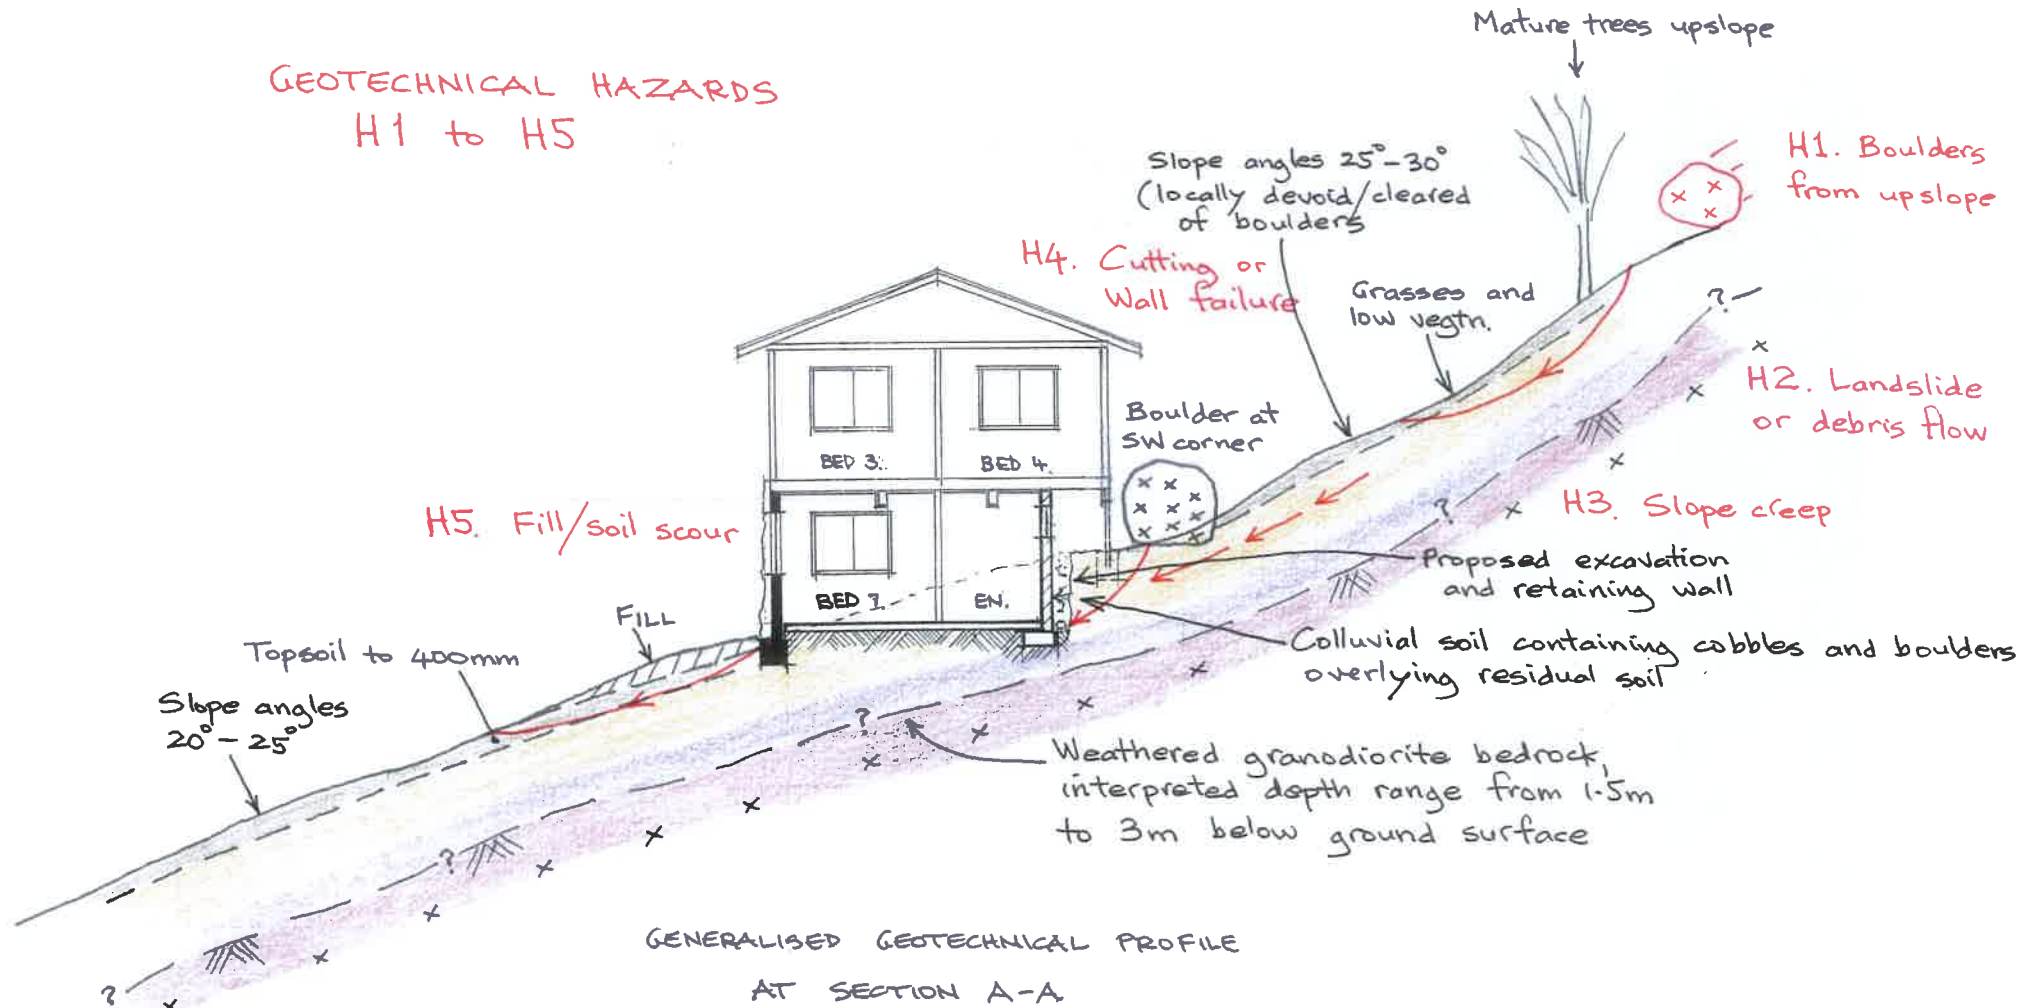 Mature trees upslope
GEOTECHNICAL HAZARDS
H1 to H5
H1. Boulders
from upslope
Slope angles 25°-30°
(locally devoid/cleared
of boulders
H4. Cutting or
Wall failure
Grasses and
low vegtn.
?
H2. Landslide
or debris flow
Boulder at
SW corner
BED 3.
BED 4.
H3. Slope creep
?
H5. Fill/soil scour
Proposed excavation
and retaining wall
BED 7.
EN.
FILL
Colluvial soil containing cobbles and boulders
overlying residual soil
Topsoil to 400mm
Slope angles
20°-25°
?
Weathered granodiorite bedrock,
interpreted depth range from 1.5m
to 3m below ground surface
?
GENERALISED GEOTECHNICAL PROFILE
AT SECTION A-A
?